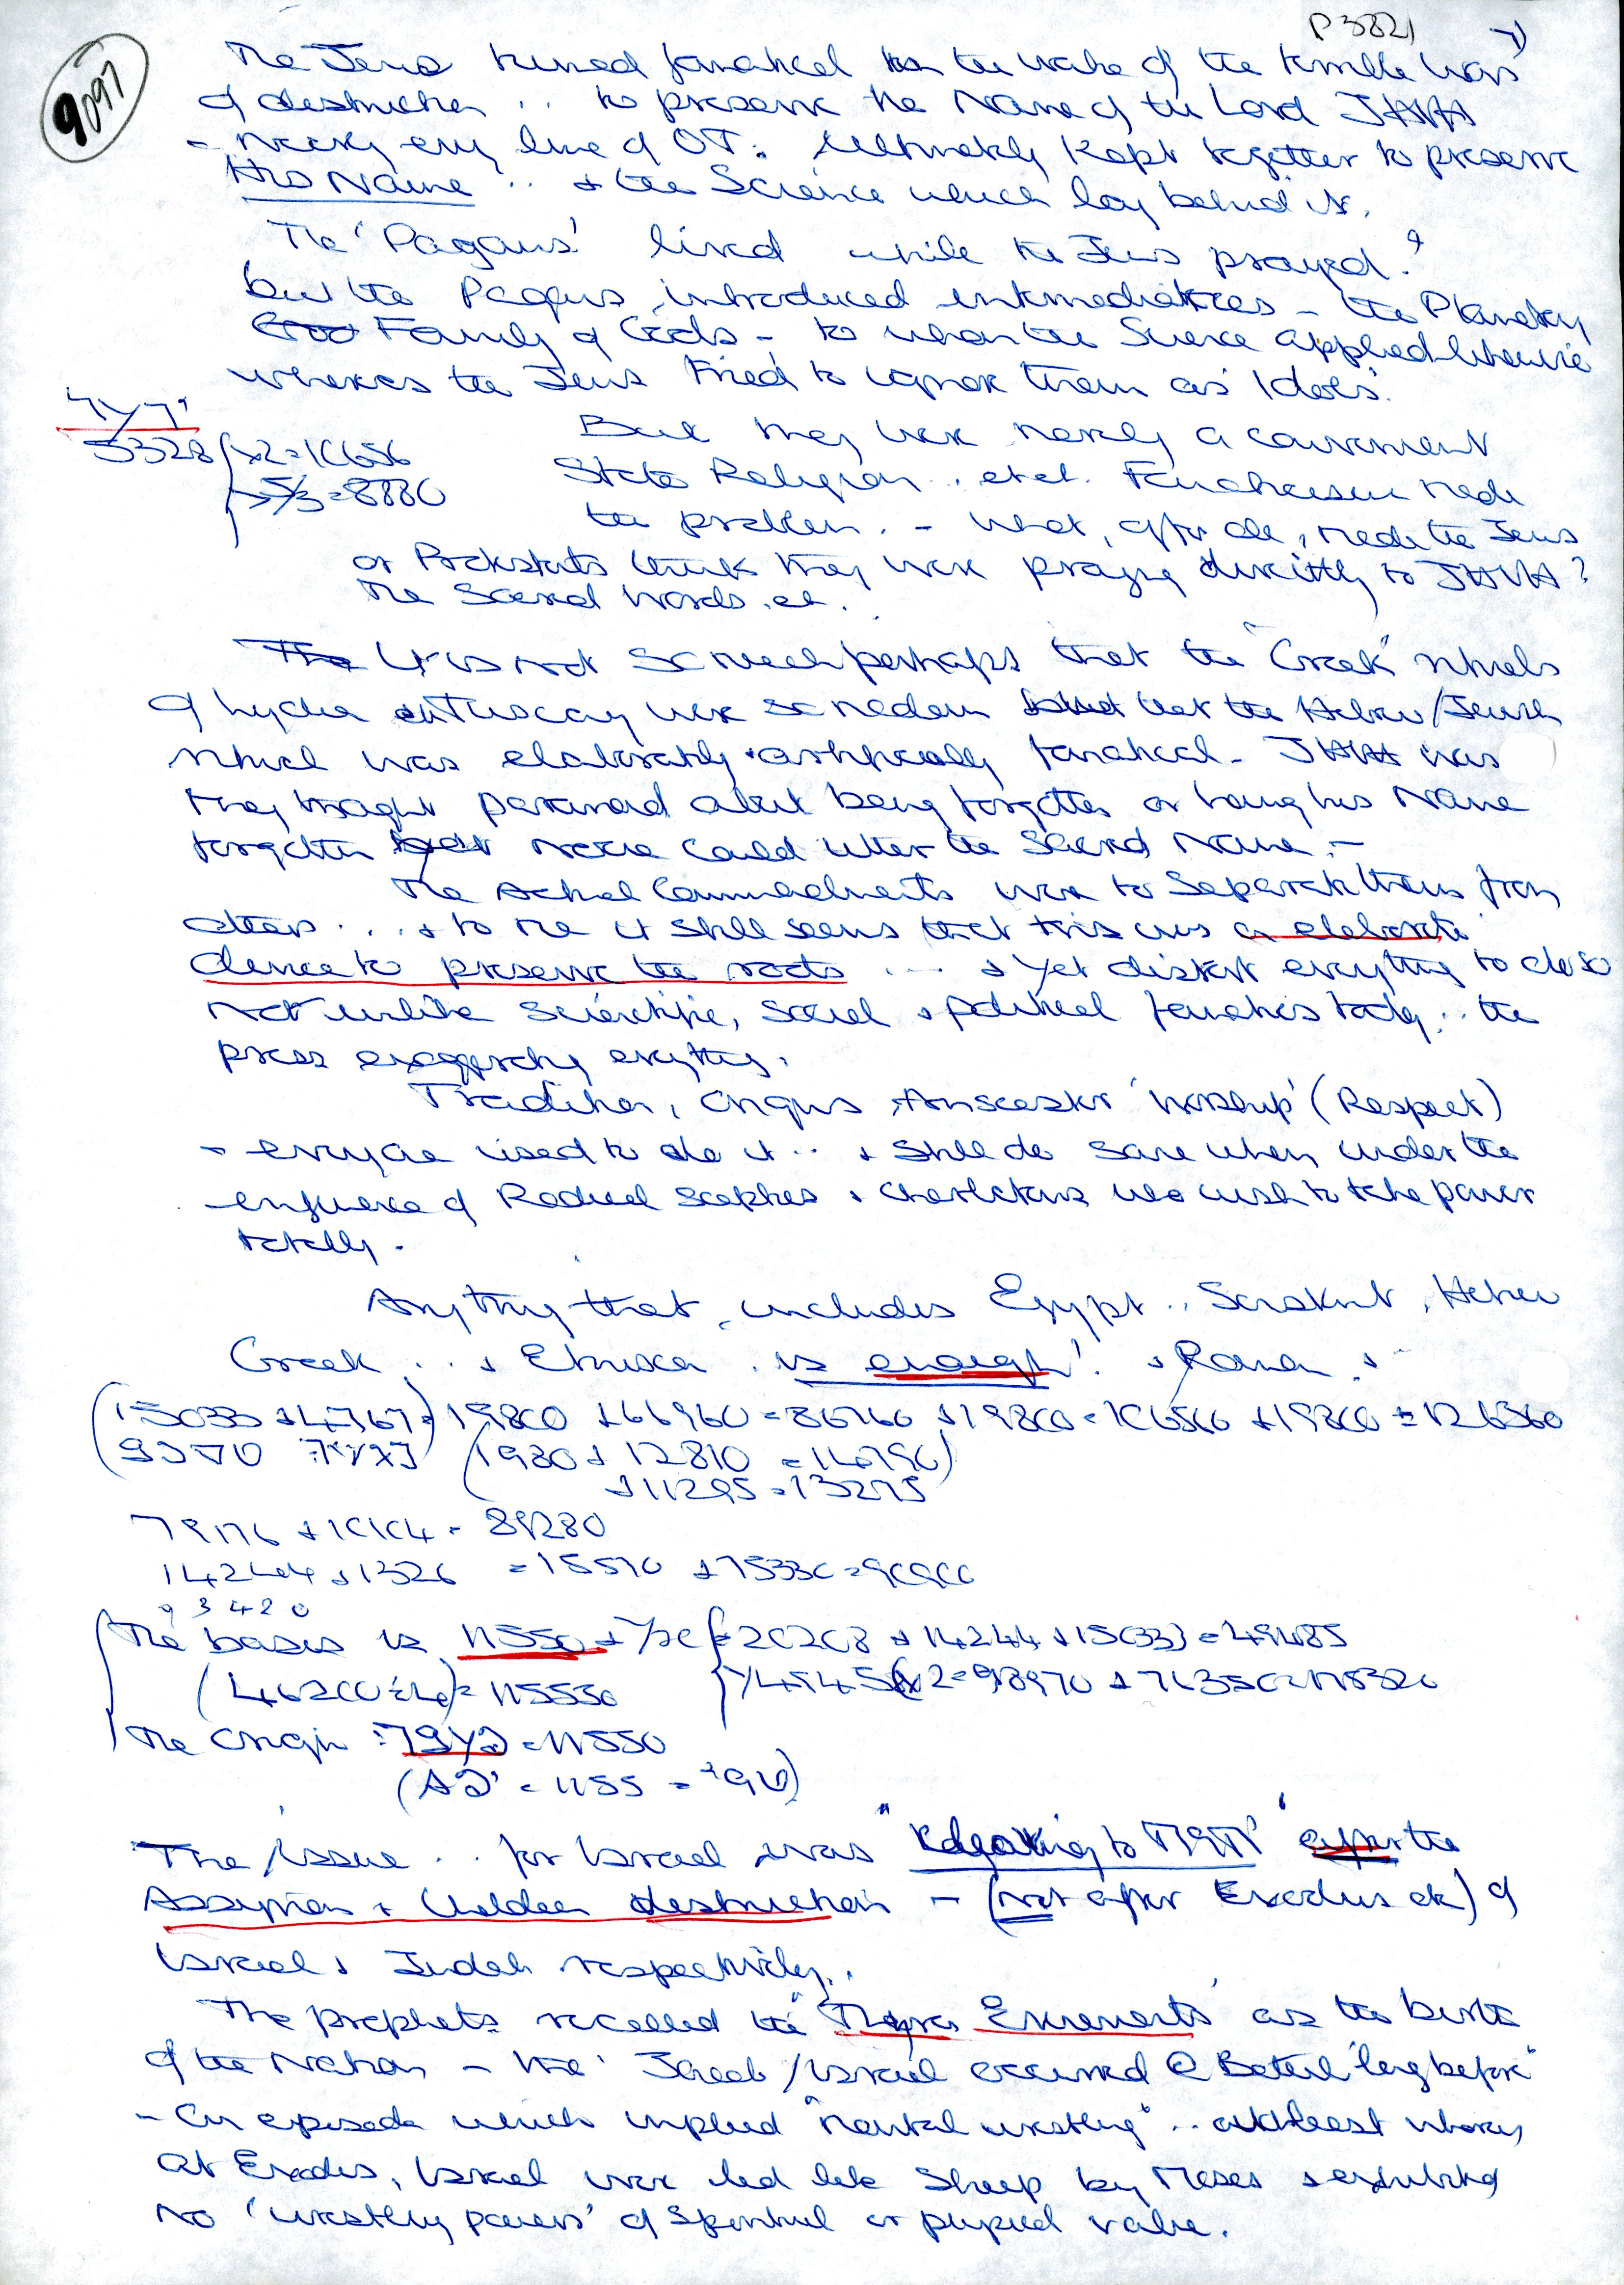 P3821
9097
The Jews turned fanatical in the wake of the terrible wars
of destruction .. to preserve the Name of the Lord JHVH
- nearly every line of OT. Ultimately kept together to preserve
His Name .. + the Science which lay behind it.
The 'Pagans' lived while the Jews prayed.?
but the Pagans introduced intermediaries - the Planetary
Family of Gods - to whom the Science applied likewise
whereas the Jews tried to ignore them as 'Idols'.
5328 x2=10656
5/3=8880
But they were merely a convenient
State Religion .. et al. Fanaticism made
the problem. - What, after all, made the Jews
or Protestants think they were praying directly to JHVH?
The Sacred Words. et.
The It is not so much perhaps that the "Greek" rituals
of Lydia Tuscany were so random but that the Hebrew/Jewish
ritual was elaborately artificially fanatical - JHVH was
they thought paranoid about being forgotten or having his Name
forgotten yet no one could utter the Sacred Name. -
The Actual Commandments were to separate them from
others ... + to me it still seems that this was an elaborate
device to preserve the roots ... + yet distort everything to do so
not unlike scientific, social + political fanatics today .. the
press exaggerating everything.
Tradition, Origins, Ancestor 'worship' (Respect)
- everyone used to do it .. + still do save when under the
influence of Radical Sceptics + charlatans who wish to take power
totally.
Anything that includes Egypt .. Sanskrit, Hebrew
Greek .. + Etruscan is enough! + Roman +
(15033 + 4767) 19800 + 66960 = 86760 + 19800 = 106560 + 19800 = 126360
(1980 + 12810 = 14790)
+ 11295 = 13275
79176 + 10104 = 89280
14244 + 1326 = 15570 + 75330 = 90900
9 3 4 2 0
The basis is 11550 + 20208 + 14244 + 15033 = 49485
(46200 ÷ 4) = 11550 49485 x 2 = 98970 + 76350 = 175320
The Origin = 11550
= 1155 =
The Issue .. for Israel was " to " after the
Assyrian + Chaldean destruction - (not after Exodus etc) of
Israel + Judah respectively..
The prophets recalled the as the birth
of the Nation - the Jacob/Israel occurred @ Betel 'long before'
- An episode which implied "mental wrestling" .. whereas
at Exodus, Israel were led like Sheep by Moses + exhibited
no 'wrestling powers' of Spiritual or physical value.